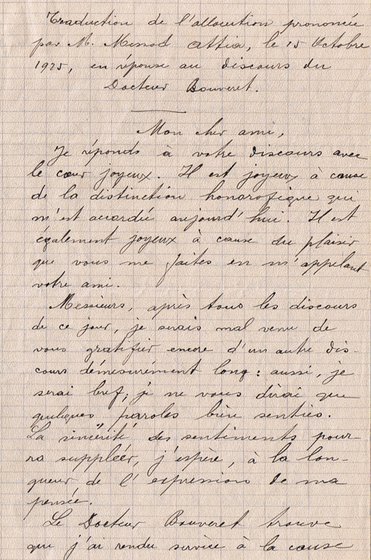 Traduction de l'allocution prononcée
par M. Messod Attias, le 15 Octobre
1925, en réponse au discours du
Docteur Bouveret.
Mon cher ami,
Je réponds à votre discours avec
le cœur joyeux. Il est joyeux à cause
de la distinction honorafique que
m'est accordée aujourd'hui. Il est
également joyeux à cause du plaisir
que vous me faites en m'appelant
votre ami.
Messieurs, après tous les discours
de ce jour, je serais mal venu de
vous gratifier encore d'un autre dis
cours démesurément long : aussi, je
serai bref, je ne vous dirai que
quelques paroles bien senties.
La sincérité des sentiments pour-
ra suppléer, j'espère, à la lon-
gueur de l'expression de ma
pensée.
Le Docteur Bouveret trouve
que j'ai rendu service à la cause